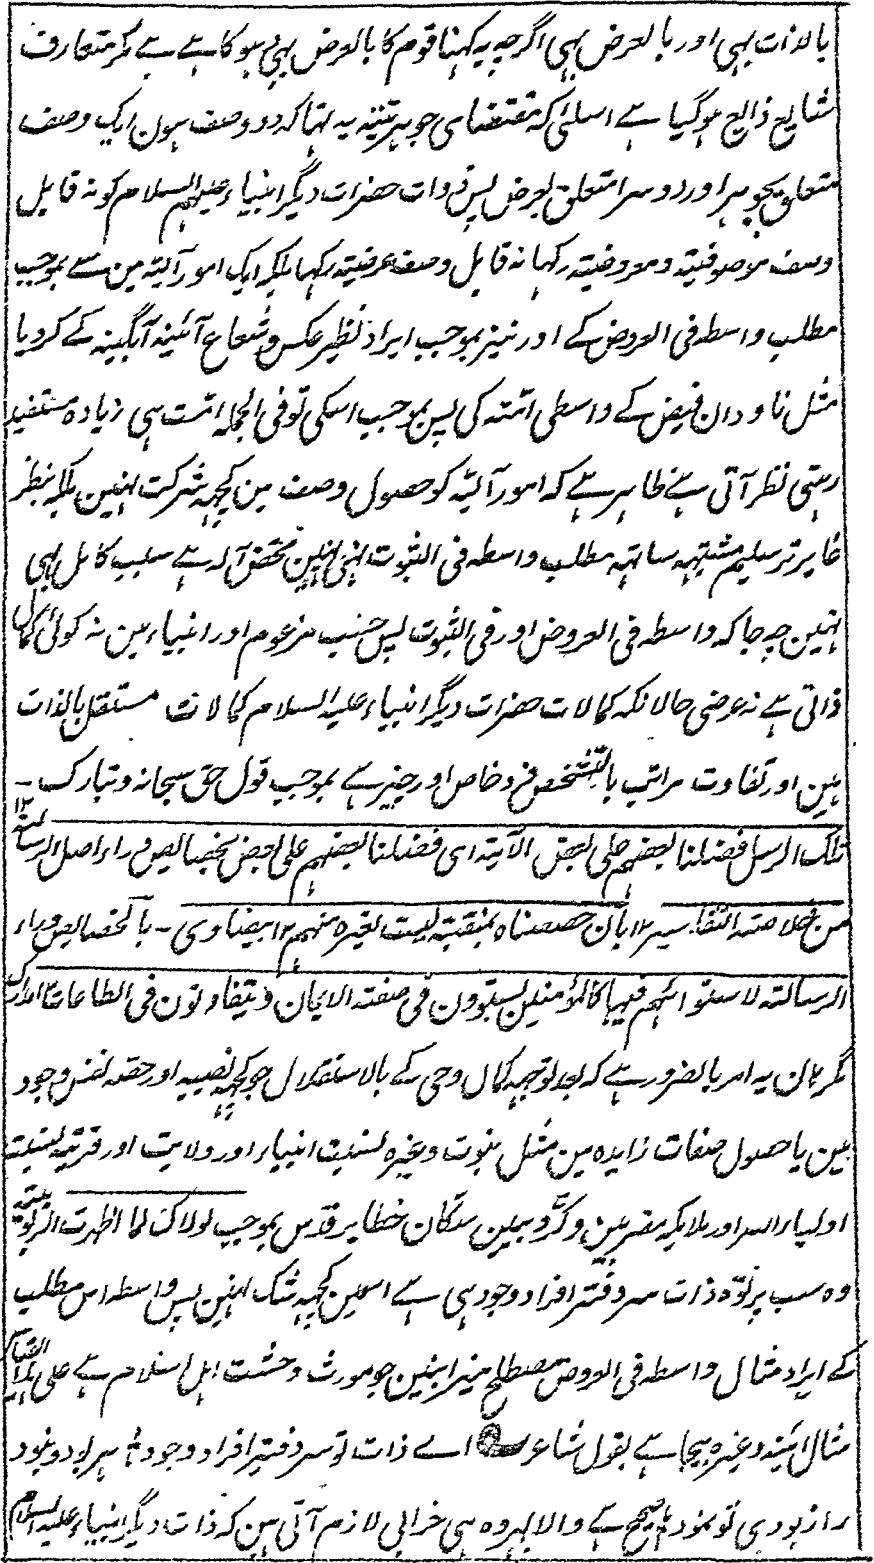 بالذات بہی اور بالعرض بہی اگرچہ یہ کہنا قوم کا بالعرض بہی ہوکا ہے ہے مگر متعارف
شایع ذایع ہوگیا ہے اسلئی کہ مقتضای جوہریتہ یہ تہا کہ دو وصف ہون ایک وصف
متعلق بجوہر اور دوسرا متعلق بعرض پس ذوات حضرات دیگر انبیاء علیہم السلام کو نہ قابل
وصف موصوفیتہ ومعروضیتہ رکہا نہ قابل وصف عرضیتہ رکہا بلکہ ایک امور آلیتہ مین سے بموجب
مطلب واسطہ فی العروض کے اور نیز بموجب ایراد نظیر عکس وشعاع آئینہ آبگینہ کے کردیا
مثل ناودان فیض کے واسطی امتہ کی پس بموجب اسکی تو فی الجملہ امت ہی زیادہ مستفید
رہتی نظر آتی ہے ظاہر ہے کہ امور آلیہ کو حصول وصف مین کچہہ شرکت نہین بلکہ بنظر
غایر ترسلیم مشتہہ ساتہہ مطلب واسطہ فی الثبوت نہین محض آلہ ہے سلب کامل بہی
نہین چہ جاکہ واسطہ فی العروض اور فی الثبوت پس حسب مزعوم اور انبیاء مین نہ کوئی کمال
ذاتی ہے نہ عرضی حالانکہ کمالات حضرات دیگر انبیاء علیہ السلام کمالات مستقل بالذات
ہین اور تفاوت مراتب بالتشخص فرد خاص اور چیز ہے بموجب قول حق سبحانہ وتبارک ۔
تلک الرسل فضلنا بعضہم علی بعض الآیتہ ای فضلنا بعضہم علی بعض بخصایص وراء اصل الرسالتہ ۱۲
من خلاصتہ التفاسیر ۱۲ بان خصصناہ بمنقبتہ لیست لغیرہ منہم ۱۲ بیضاوی ۔ بالخصایص وراء
الرسالتہ لاستوائہم فیہا کالمؤمنین یستوون فی صفتہ الایمان ویتفاوتون فی الطاعات ۱۲ مدارک
مگر ہان یہ امر بالضرور ہے کہ بعد توجہہ کمال وحی کے بالاستقلال جو کچہہ نصیبہ اور حصہ نفس وجود
مین یا حصول صفات زایدہ مین مثل نبوت وغیرہ بنسبت انبیاء اور ولایت اور قربتہ بنسبتہ
اولیاء اللہ اور ملایکہ مقربین وکروبیین سکان خطایر قدس بموجب لولاک لما اظہرت الربوبیتہ
وہ سب پرتوہ ذات سردفتر افراد وجود ہی ہے اسمین کچہہ شک نہین پس واسطہ اس مطلب
کے ایراد مثال واسطہ فی العروض مصطلح میزانیین جو مورث وحشت اہل اسلام ہے علی ہذا القیاس
مثال آئینہ وغیرہ بیجا ہے بقول شاعر اے ذات تو سردفتر افراد وجود ہر بود ونبود
راز بودی تو نمود صحیح ہے والا پہر وہ ہی خرابی لازم آتی ہین کہ ذات دیگر انبیاء علیہ السلام